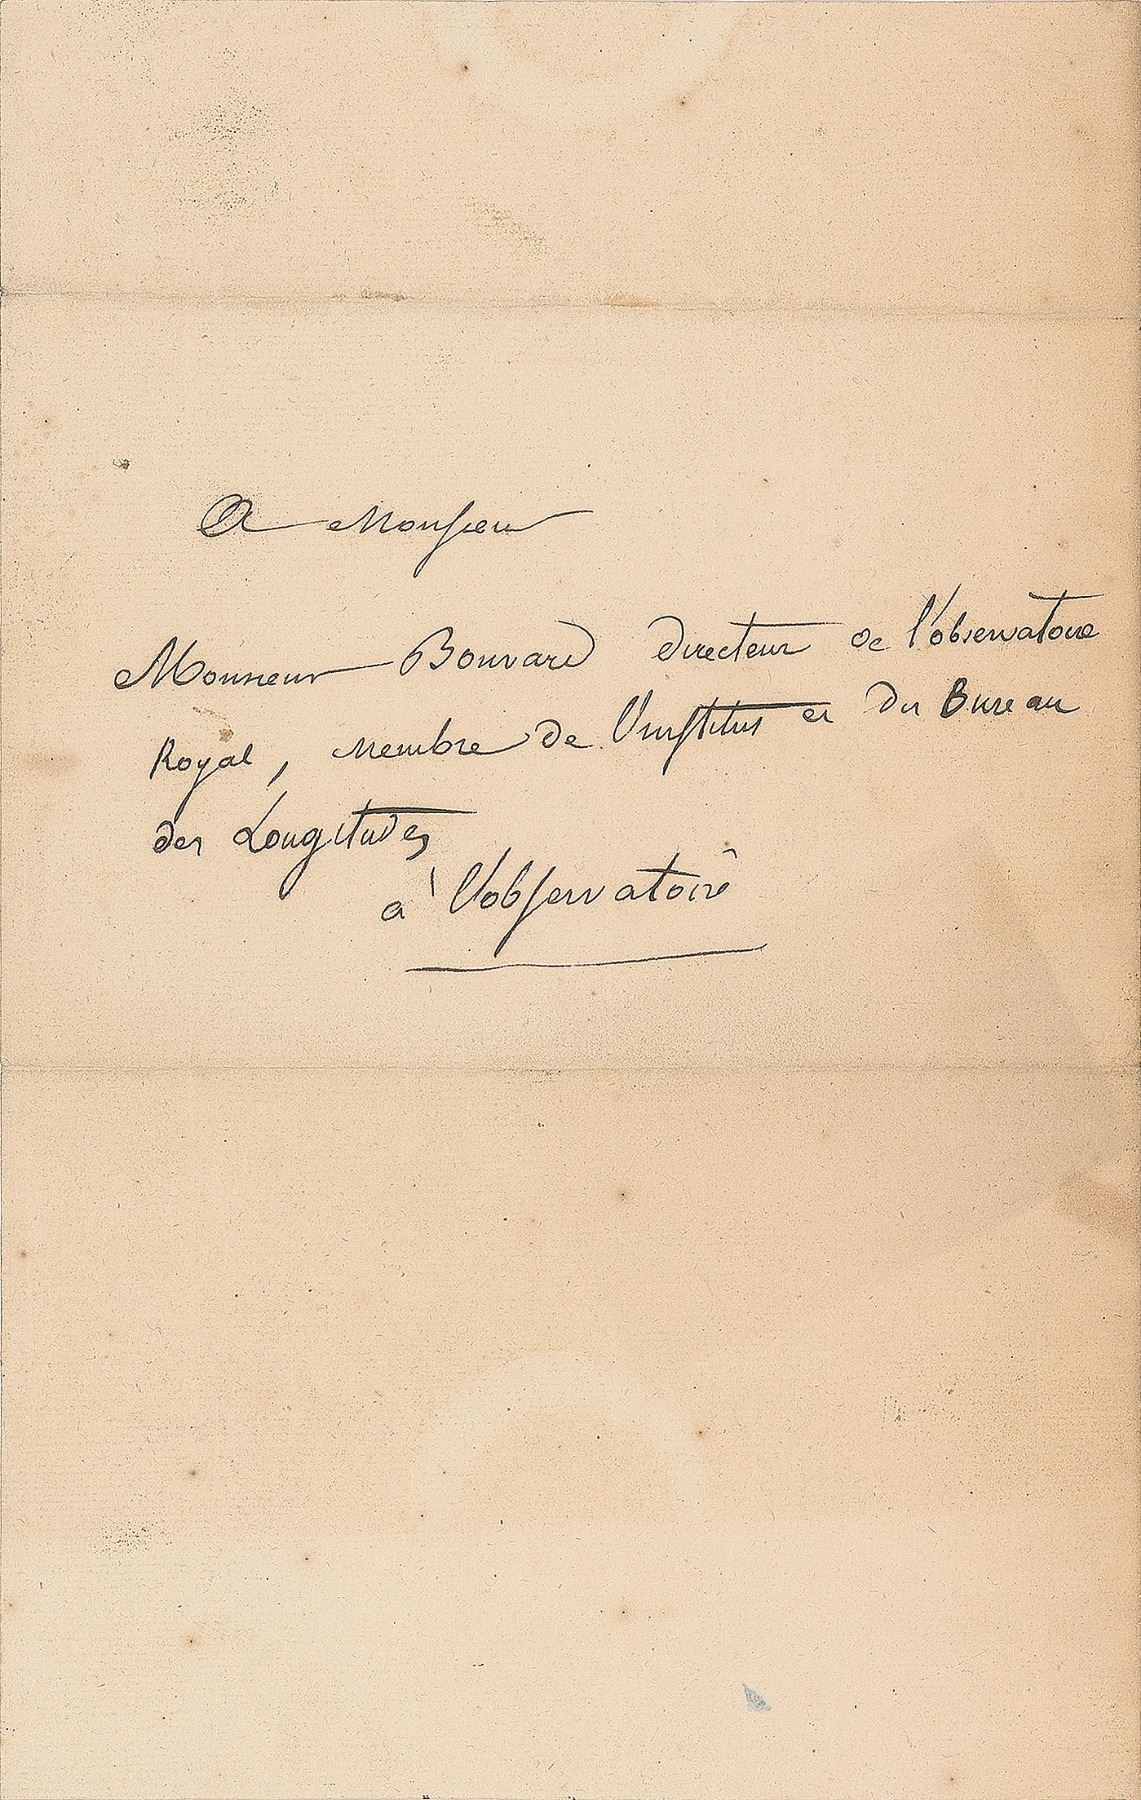 A Monsieur
Monsieur Bouvard directeur de l'observatoire
Royal, membre de l'institut et du Bureau
des Longitudes
à l'observatoire